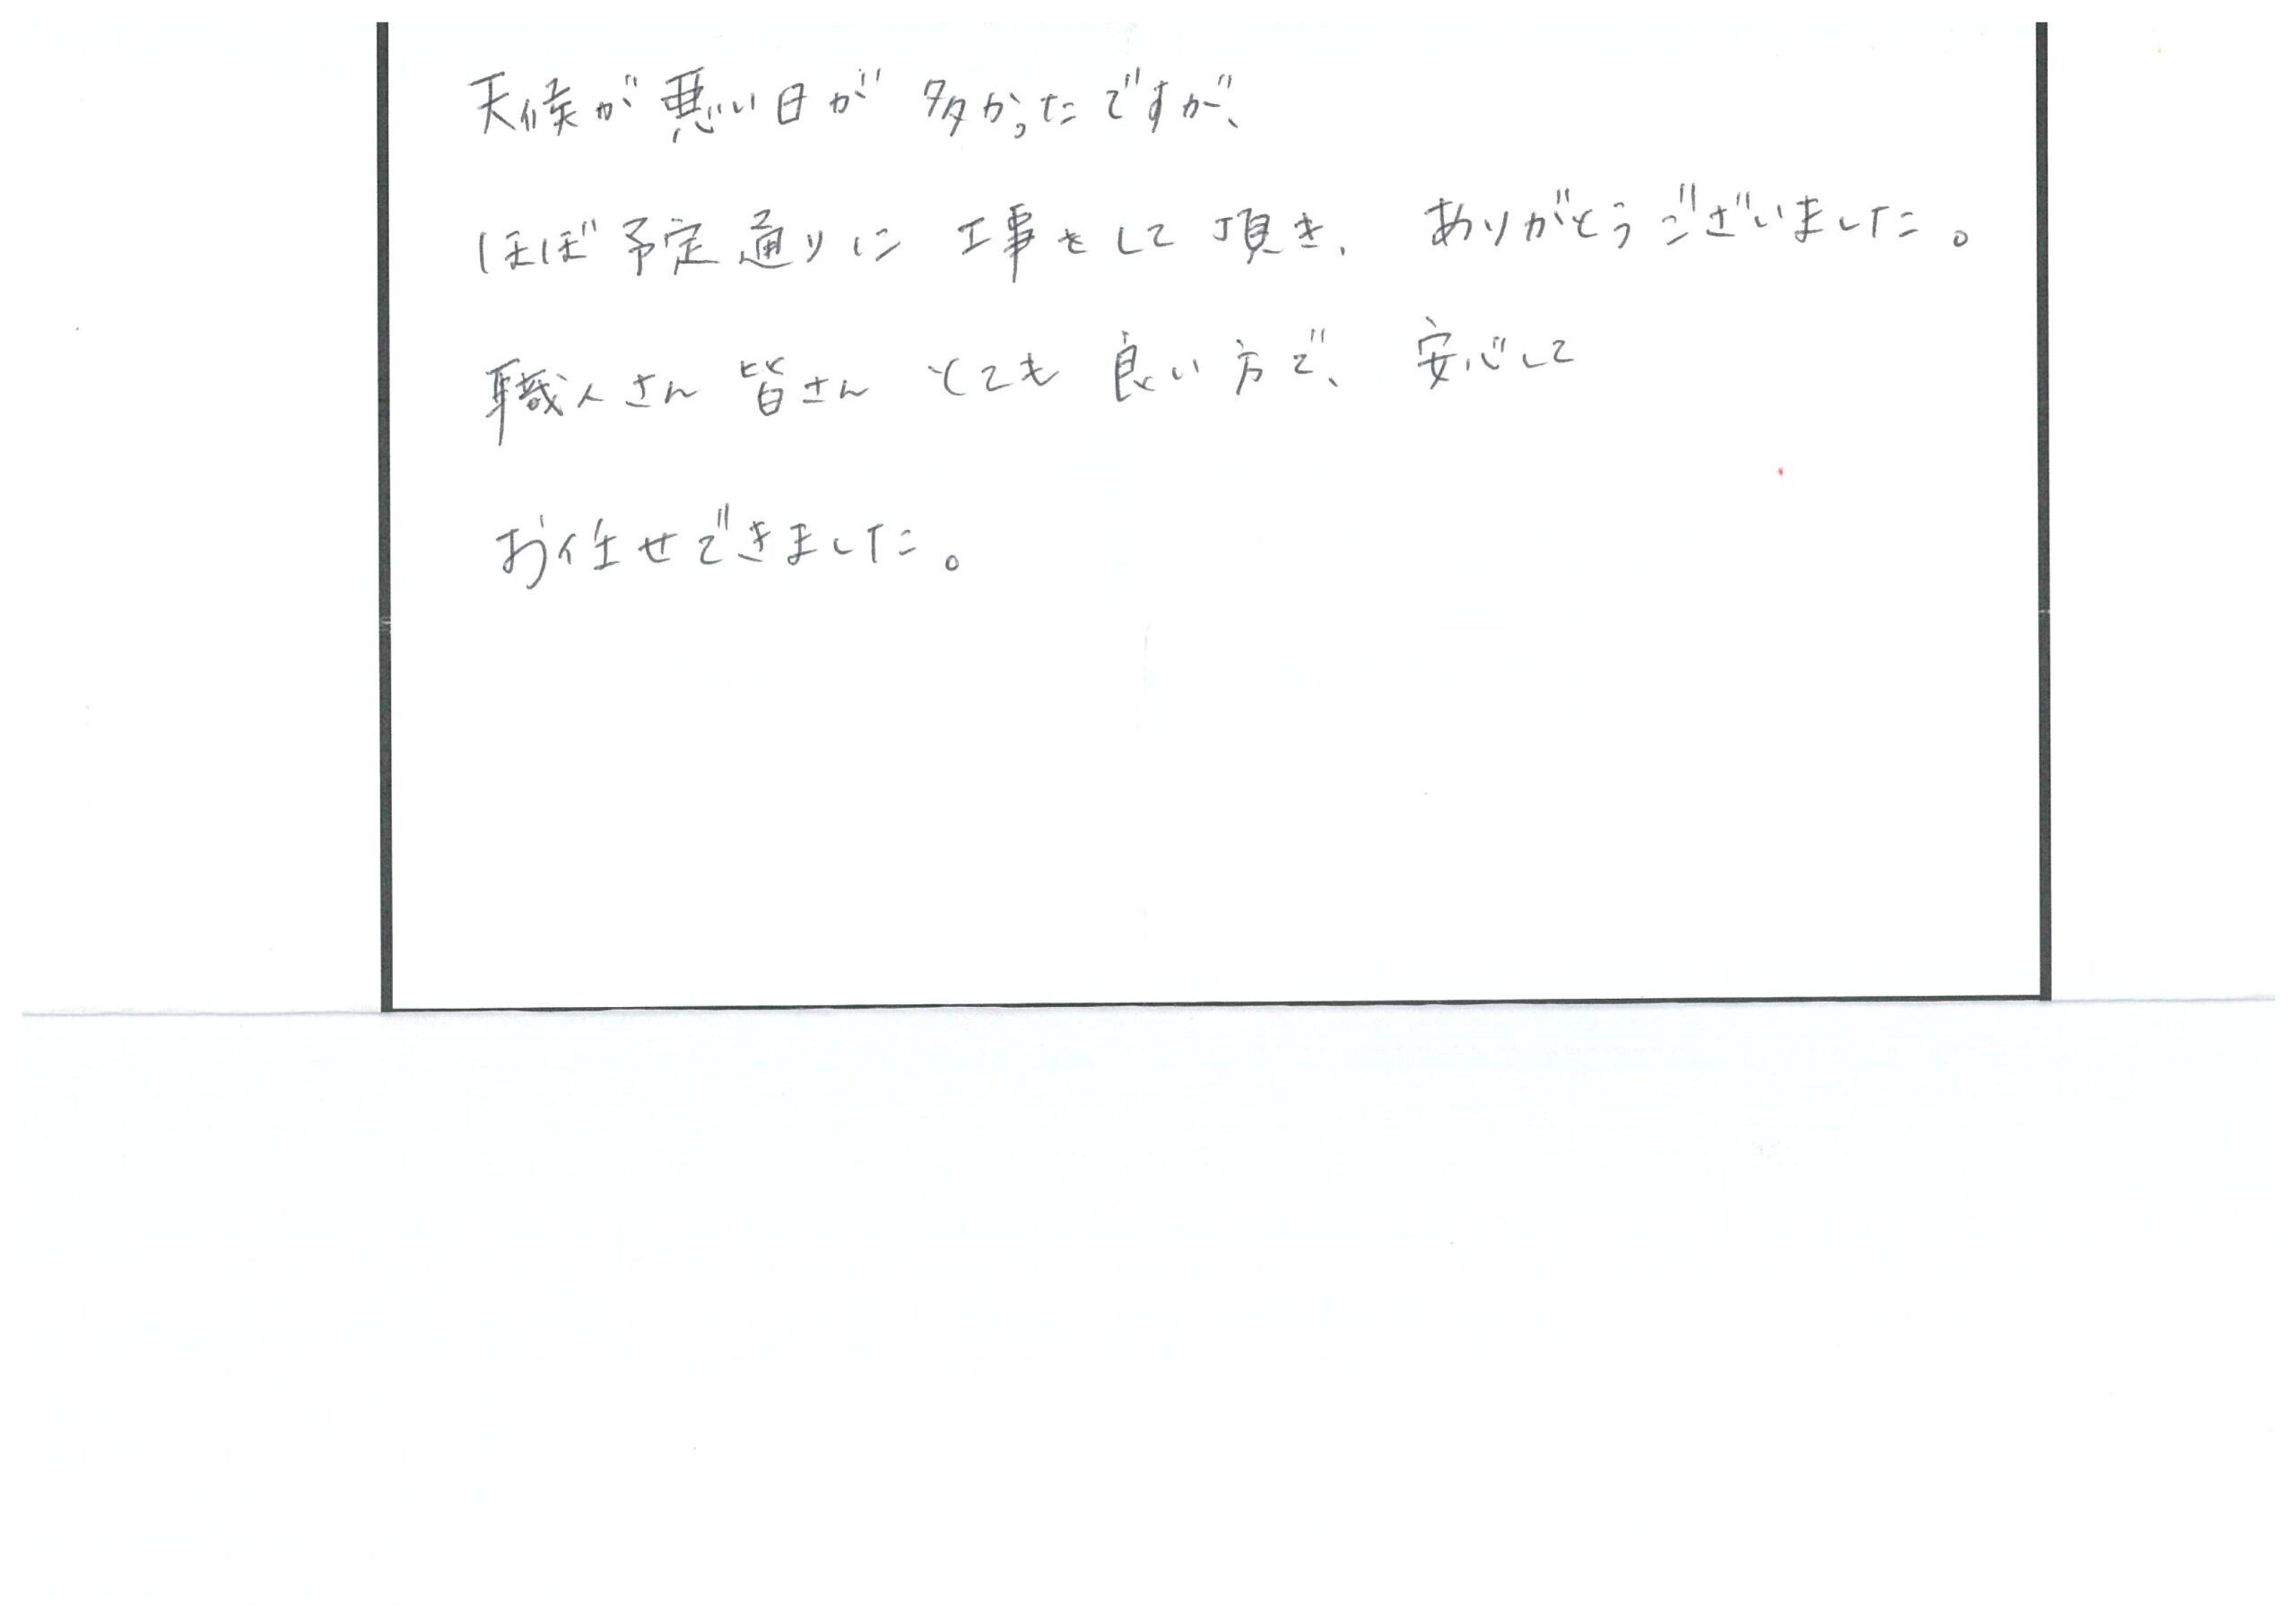 天候が悪い日が多かったですが、
ほぼ予定通りに工事をして頂き、ありがとうございました。
職人さん皆さんとても良い方で、安心して
お任せできました。